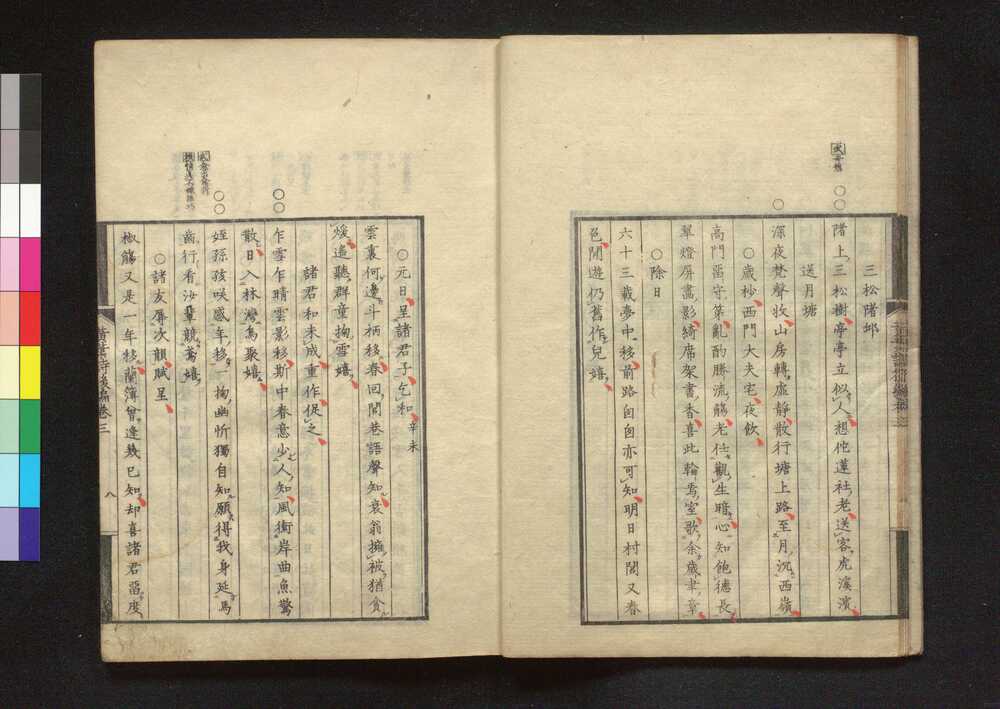 三松陼邨
陼上三松樹亭亭立似人想佗蓮社老送客虎溪濱
送月塘
深夜梵聲收山房轉虛靜散行塘上路至月沉西嶺
○歲杪西門大夫宅夜飲
高門畱守第亂酌勝流觴老仕觀生暗心知飽德長
翠燈屏畫影綺席架書香喜此輪焉室歌余歲聿章
○除日
六十三載夢中移前路自自亦可知明日村閭又春
色閒遊仍舊作兒嬉
○元日呈諸君子乞和 辛未
雲裏何邊斗柄移春回閭巷語聲知衰翁擁被猶貪
煖遙聽群童掬雪嬉
諸君和未成重作促之
乍雪乍晴雲影移斯中春意少人知風衝岸曲魚驚
散日入林灣鳥聚嬉
姪孫孩咲感年移一掬幽忻獨自知願得我身延馬
齒行看汝輩競蒿嬉
○諸友辱次韻賦呈
椒觴又是一年移蘭簿曾逢幾已知却喜諸君畱度
黃葉夕陽邨舍詩後編卷三
八